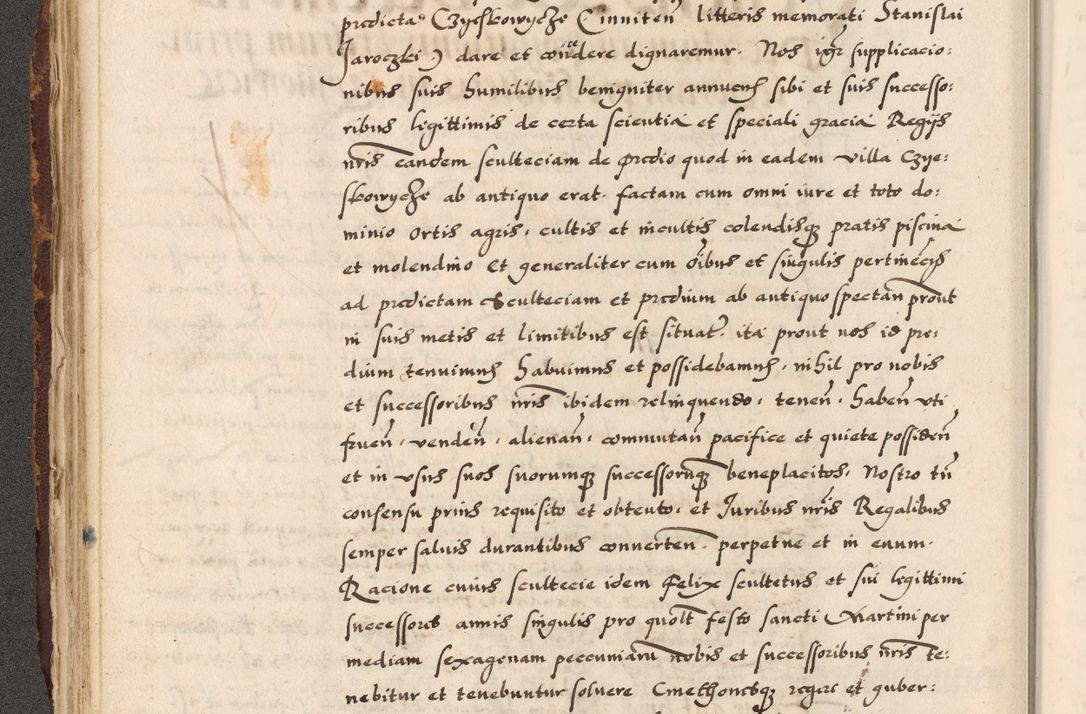 prędictas Czyeskowycze (inniteñ litteris memorati Stanislai
Jaroczki) dare et concedere dignaremur. Nos igr̃ supplicacio:
nibus suis humilibus benigniter annuens sibi et suis successo:
ribus ligittimis de certa scientia et speciali gracia Regijs
nr̃is eandem sculteciam de prędio quod in eadem villa Czye:
skowycze ab antiquo erat. factam cum omni iure et toto do:
minio ortis agris, cultis et incultis colendisq₃ pratis piscina
et molendino Et generaliter cum oi͂bus et singulis pertinẽcijs
ad prędictam Sculteciam et prędium ab antiquo spectañ prout
in suis metis et limitibus est situat̃. ita prout nos id pre:
dium tenuimus habuimus et possidebamus, nihil pro nobis
et successoribus nr̃is ibidem relinquendo, teneñ, habeñ vti
frueñ, vendeñ, alienañ, commutañ pacifice et quiete possideñ
et in vsus suos suorumq₃ successorumq₃ beneplacitos, Nostro tñ
consensu prius requisito et obtento, et Juribus nr̃is Regalibus
semper saluis durantibus conuerteñ. perpetue et in euum.
Racione cuius scultecie idem Felix scultetus et sui legittimi
successores annis singulis pro quolt̃ festo sancti Martini per
mediam sexagenam pecuniarũ nobis et successoribus nr̃is te:
nebitur et tenebuntur soluere Cmethonesq₃ regere et guber: